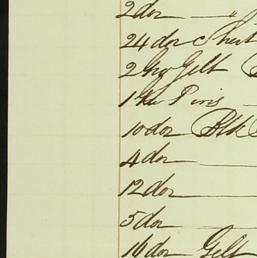 2 doz — "
24 doz Shirt
2 Gro Gilt
1 Pins —
10 doz Blk
4 doz —
12 doz —
5 doz —
16 doz Gilt